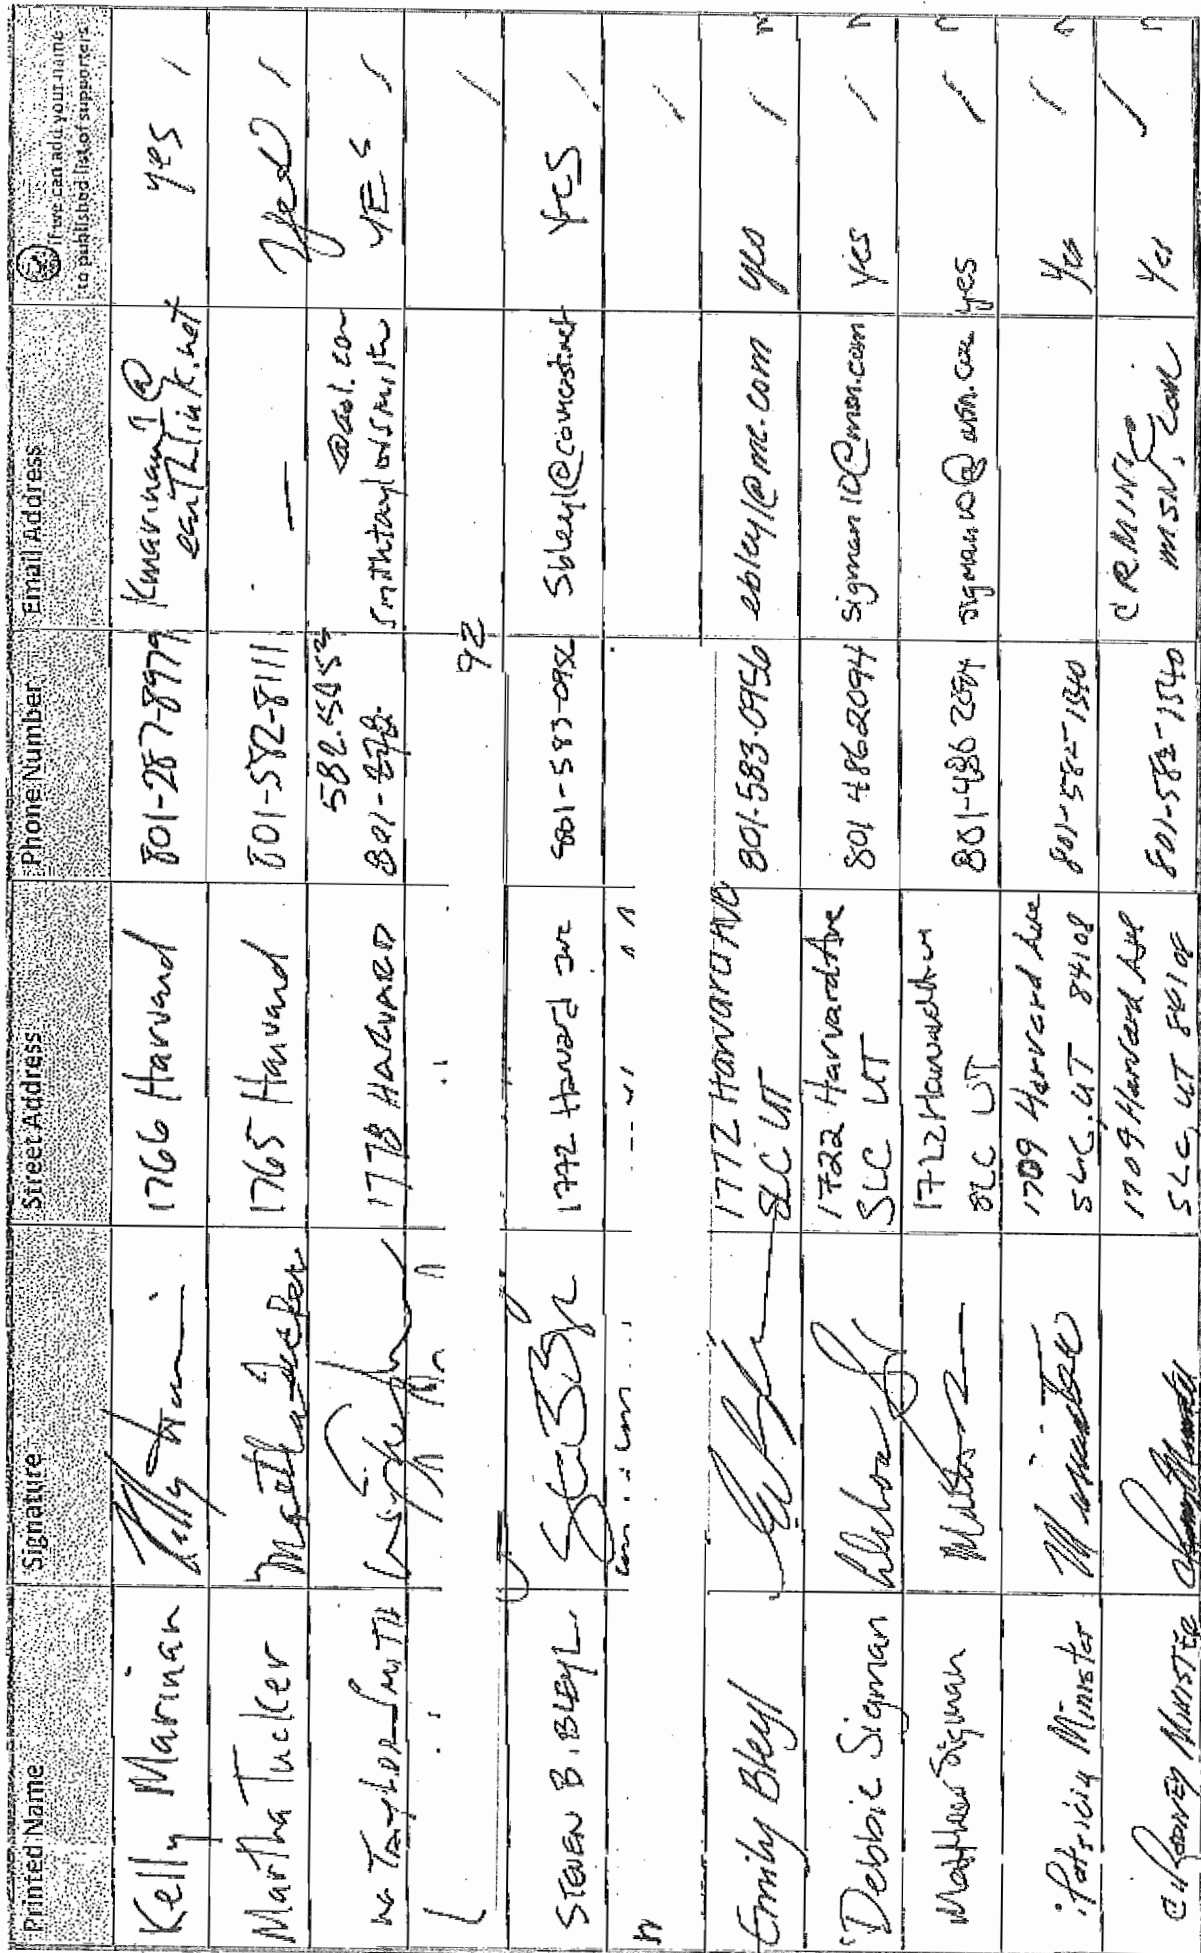 Printed Name Signature Street Address Phone Number Email Address if we can add your name
to published list of supporters
Kelly Marinan 1766 Harvard 801-287-8979 Kmarinan1@
earthlink.net yes /
Martha Tucker Martha Tucker 1765 Harvard 801-582-8111 — yes /
TAYLOR-SMITH 1778 HARVARD 582.5453
801- @aol.com
smithtaylorsmith YES /
92 /
STEVEN B. BLEYL 1772 Harvard Ave 801-583-0956 Sbleyl@comcast.net Yes /
/
Emily Bleyl 1772 Harvard Ave
SLC UT 801-583-0956 ebleyl@me.com yes /
Debbie Sigman 1722 Harvard Ave
SLC UT 801 486 2094 sigman10@msn.com yes /
Matthew Sigman 1722 Harvard
SLC UT 801-486 2094 sigman10@msn.com yes /
Patricia Minister 1709 Harvard Ave
SLC, UT 84108 801-582-1540 Yes /
C. Rodney Minister 1709 Harvard Ave
SLC, UT 84108 801-582-1540 CRMINI
msn.com Yes /